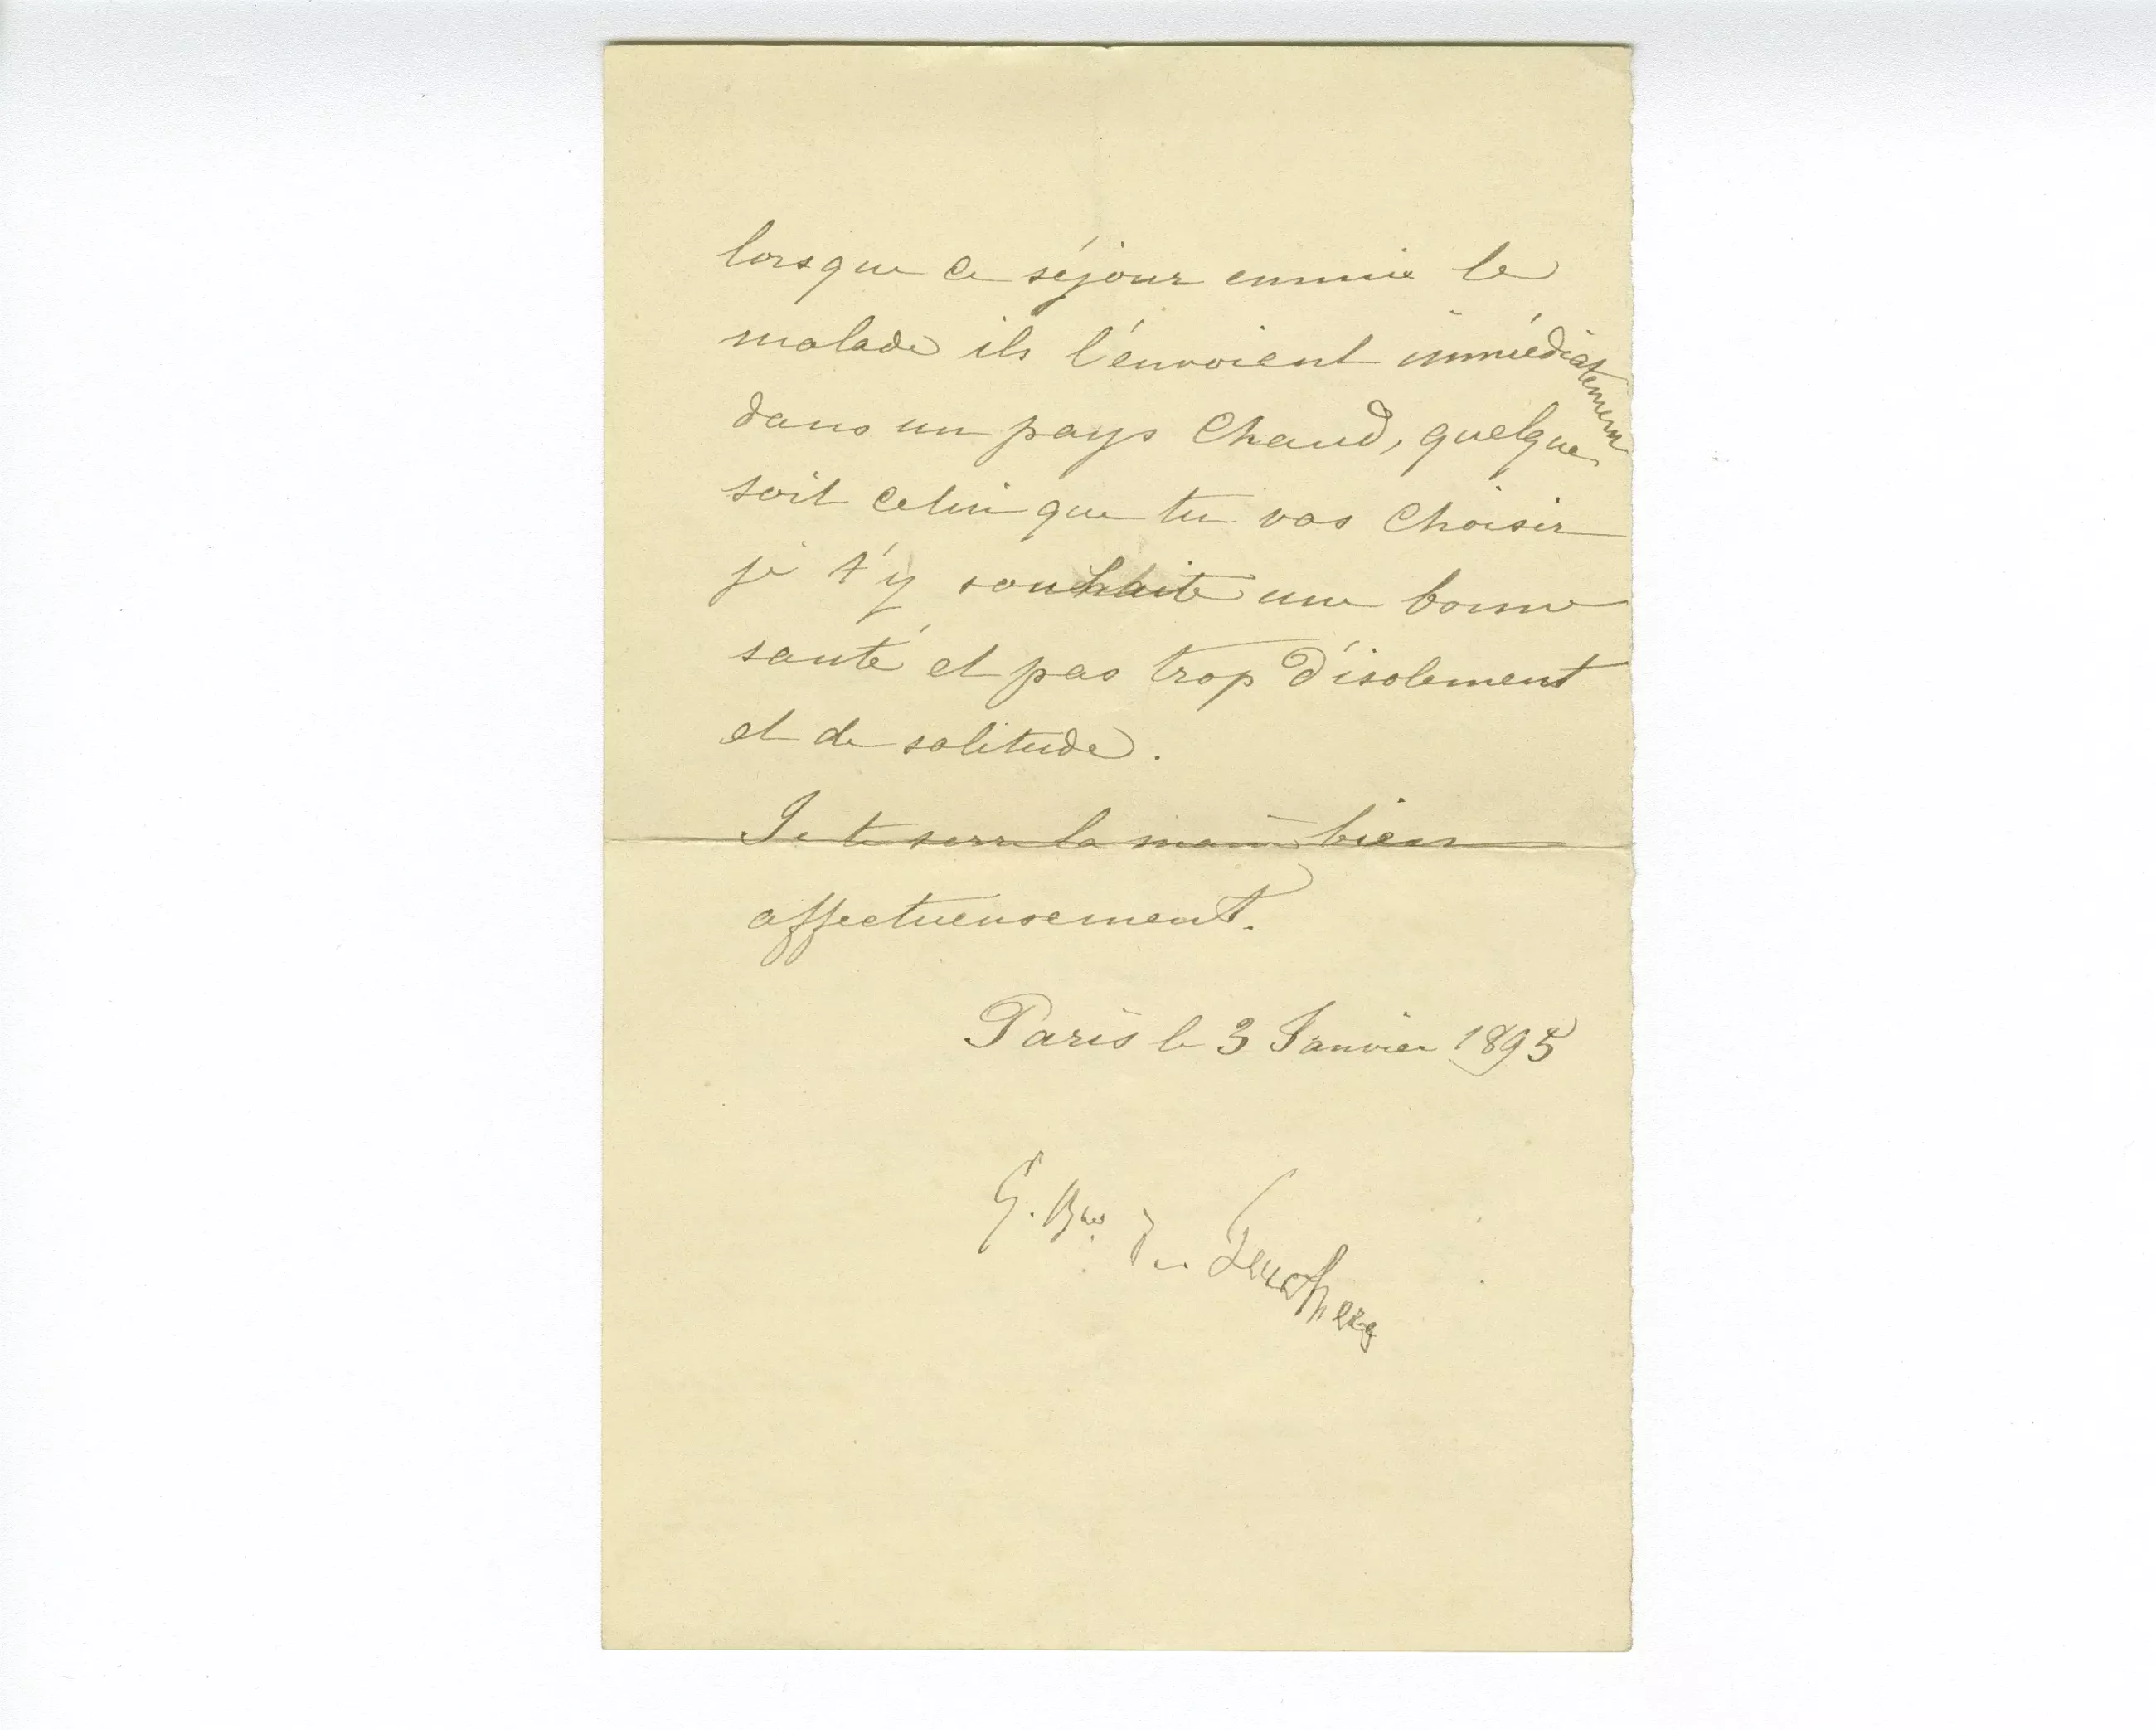 lorsque ce séjour ennuie le
malade ils l'envoient immédiatement
dans un pays Chaud, quelque
soit celui que tu vas Choisir
je t'y souhaite une bonne
santé et pas trop d'isolement
et de solitude.
Je te serre la main bien
affectueusement.
Paris le 3 Janvier 1895
G. Bon de